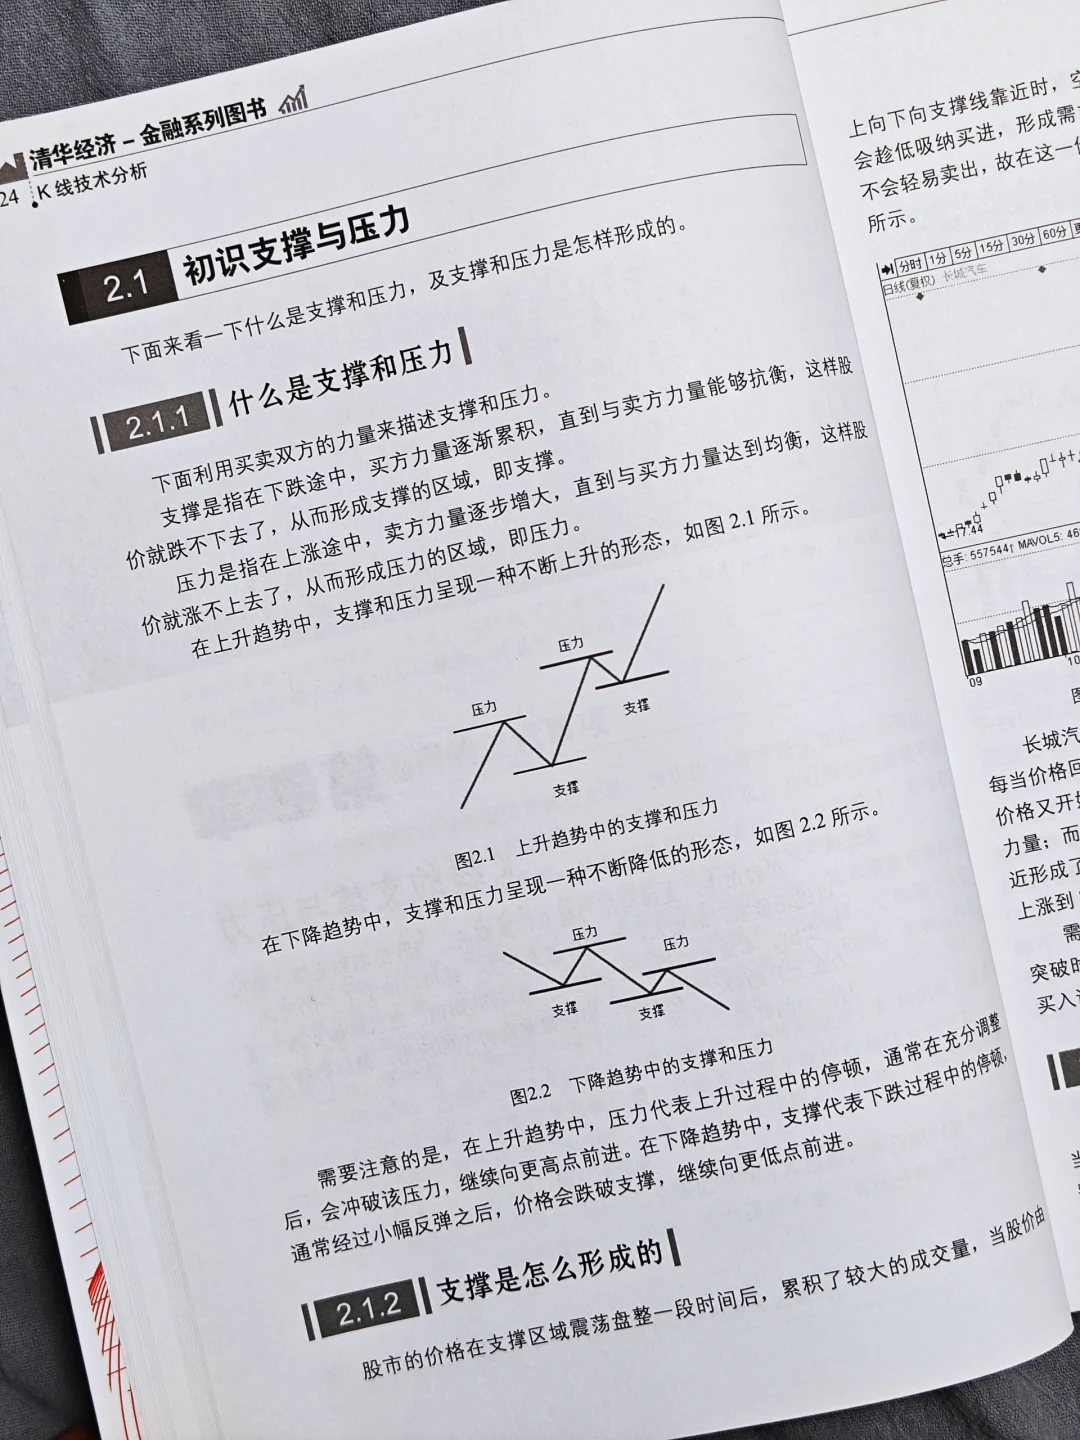 清华经济－金融系列图书
24
K 线技术分析
2.1 初识支撑与压力
下面来看一下什么是支撑和压力，及支撑和压力是怎样形成的。
2.1.1 什么是支撑和压力
下面利用买卖双方的力量来描述支撑和压力。
支撑是指在下跌途中，买方力量逐渐累积，直到与卖方力量能够抗衡，这样股
价就跌不下去了，从而形成支撑的区域，即支撑。
压力是指在上涨途中，卖方力量逐步增大，直到与买方力量达到均衡，这样股
价就涨不上去了，从而形成压力的区域，即压力。
在上升趋势中，支撑和压力呈现一种不断上升的形态，如图 2.1 所示。
压力
压力
支撑
支撑
图2.1 上升趋势中的支撑和压力
在下降趋势中，支撑和压力呈现一种不断降低的形态，如图 2.2 所示。
压力
压力
支撑
支撑
图2.2 下降趋势中的支撑和压力
需要注意的是，在上升趋势中，压力代表上升过程中的停顿，通常在充分调整
后，会冲破该压力，继续向更高点前进。在下降趋势中，支撑代表下跌过程中的停顿，
通常经过小幅反弹之后，价格会跌破支撑，继续向更低点前进。
2.1.2 支撑是怎么形成的
股市的价格在支撑区域震荡盘整一段时间后，累积了较大的成交量，当股价由
上向下向支撑线靠近时，空
会趁低吸纳买进，形成需
不会轻易卖出，故在这一
所示。
分时 1分 5分 15分 30分 60分
日线(复权) 长城汽车
17.44
总手: 557544↑ MAVOL5: 46
09
10
长城汽
每当价格回
价格又开
力量；而
近形成了
上涨到
需
突破时
买入